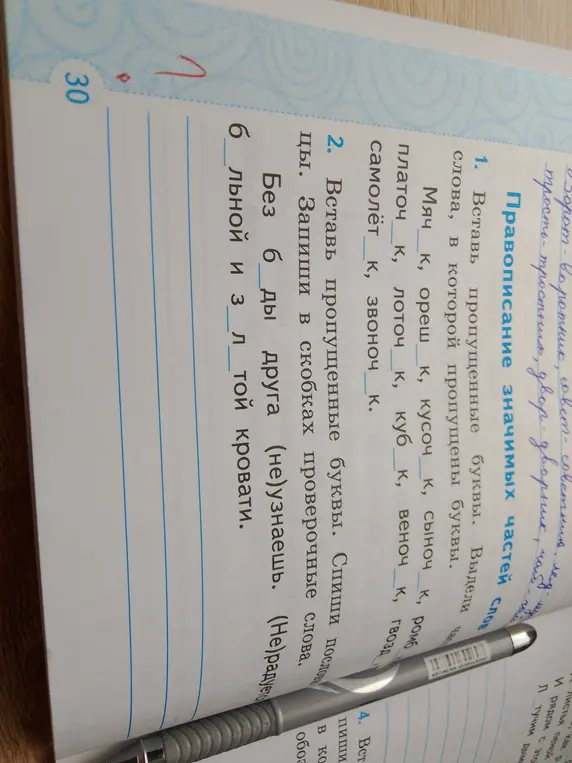 ворот-воротник, совет-советник, лед-
трость-тростник, двор-дворник, чай-
Правописание значимых частей слов
1. Вставь пропущенные буквы. Выдели
слова, в которой пропущены буквы.
Мяч_к, ореш_к, кусоч_к, сыноч_к, ромб
платоч_к, лоточ_к, куб_к, веноч_к, гвозд
самолёт_к, звоноч_к.
2. Вставь пропущенные буквы. Спиши послови
цы. Запиши в скобках проверочные слова.
Без б_ды друга (не)узнаешь. (Не)радуется
б_льной и з_л_той кровати.
30
4. Вст
пиши
в ко
обоз
И рядом
Л тучи